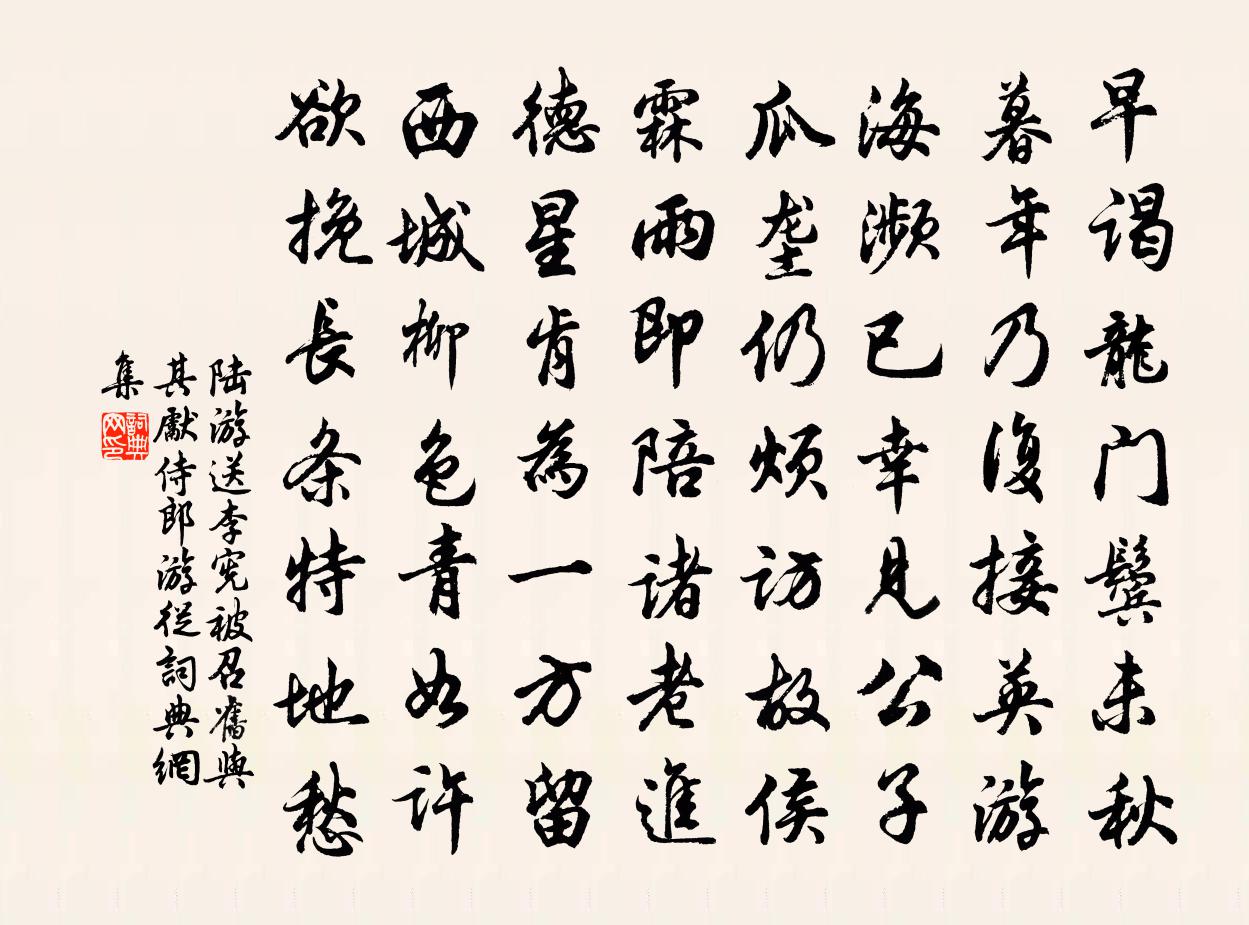 早谒龍门鬓未秋
暮年乃復接英游
海濒已幸見公子
瓜垄仍烦访故侯
霖雨即陪诸老進
德星肯為一方留
西城柳色青如许
欲挽長条特地愁
陆游送李宪被召舊與
其獻侍郎游從詞典網
集
詞典
网印